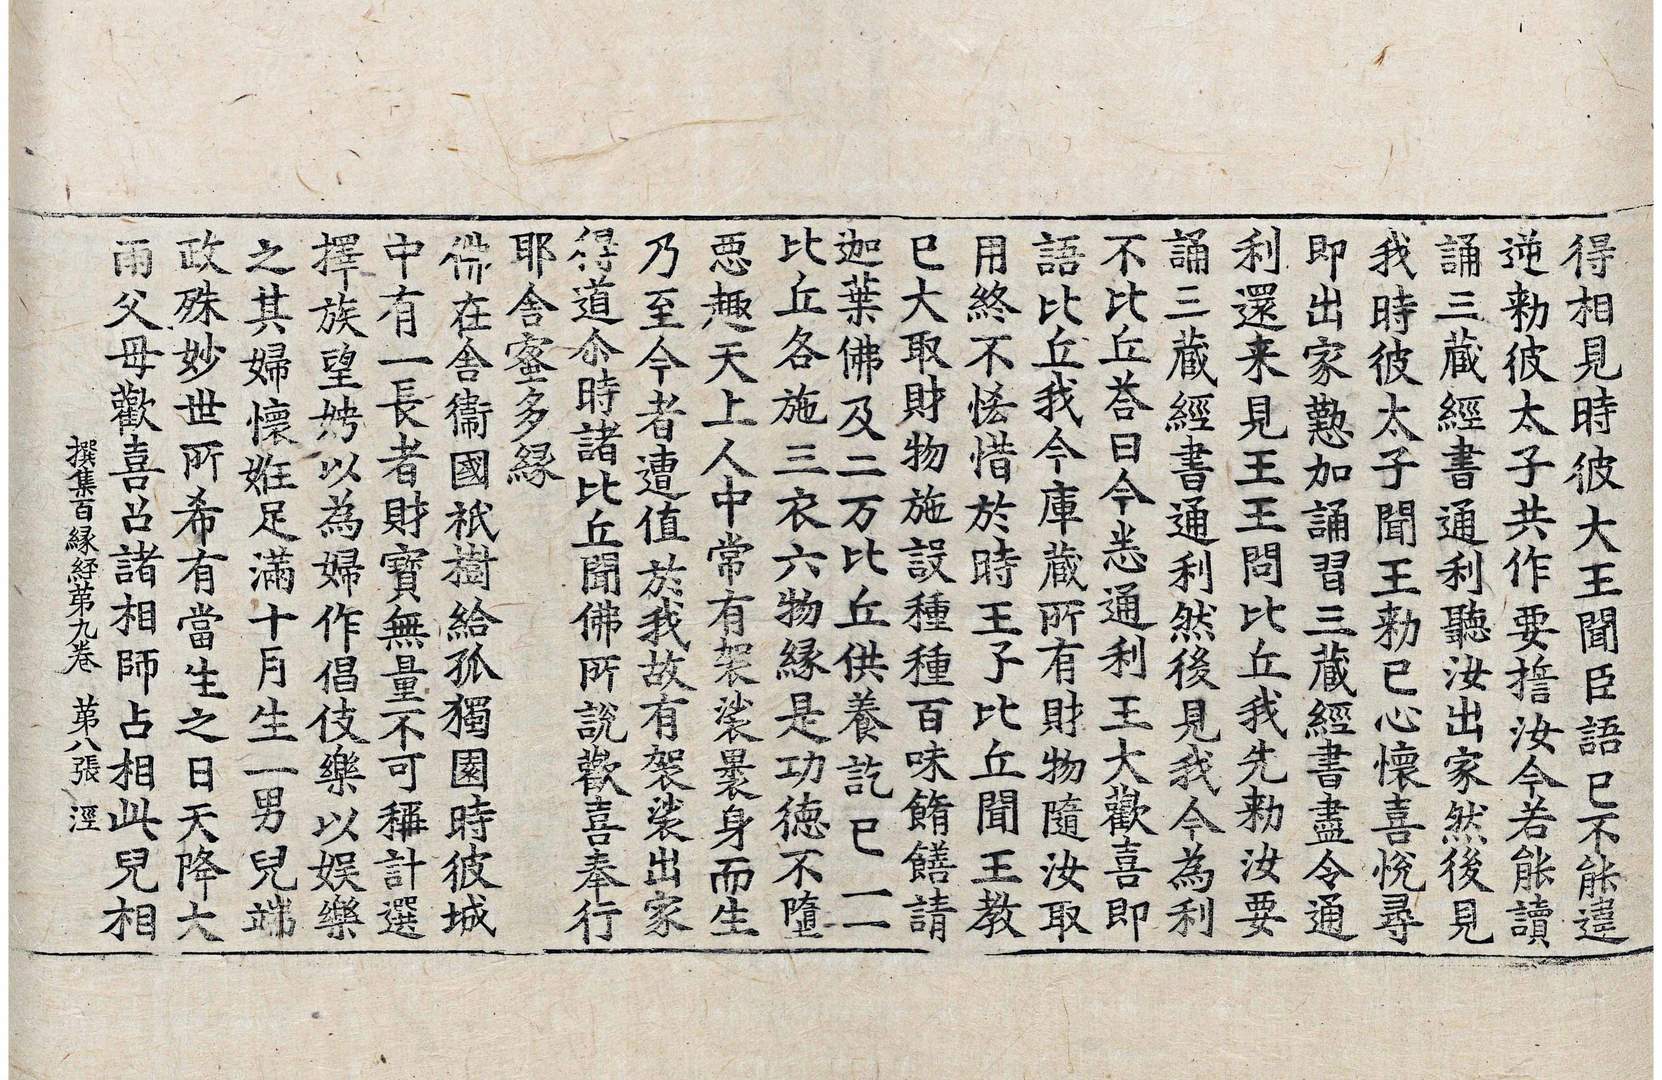 得相見時彼大王聞臣語已不能違
逆勑彼太子共作要誓汝今若能讀
誦三藏經書通利聽汝出家然後見
我時彼太子聞王勑已心懷喜悅尋
即出家懃加誦習三藏經書盡令通
利還来見王王問比丘我先勑汝要
誦三藏經書通利然後見我今為利
不比丘荅曰今悉通利王大歡喜即
語比丘我今庫藏所有財物隨汝取
用終不悋惜於時王子比丘聞王教
已大取財物施設種種百味餚饍請
迦葉佛及二万比丘供養訖已一一
比丘各施三衣六物緣是功德不墮
惡趣天上人中常有袈裟裹身而生
乃至今者遭值於我故有袈裟出家
得道尒時諸比丘聞佛所說歡喜奉行
耶舍蜜多緣
佛在舍衞國祇樹給孤獨園時彼城
中有一長者財寶無量不可稱計選
擇族望娉以為婦作倡伎樂以娛樂
之其婦懷姙足滿十月生一男兒端
政殊妙世所希有當生之日天降大
雨父母歡喜召諸相師占相此兒相
撰集百緣經第九卷 第八張 涇